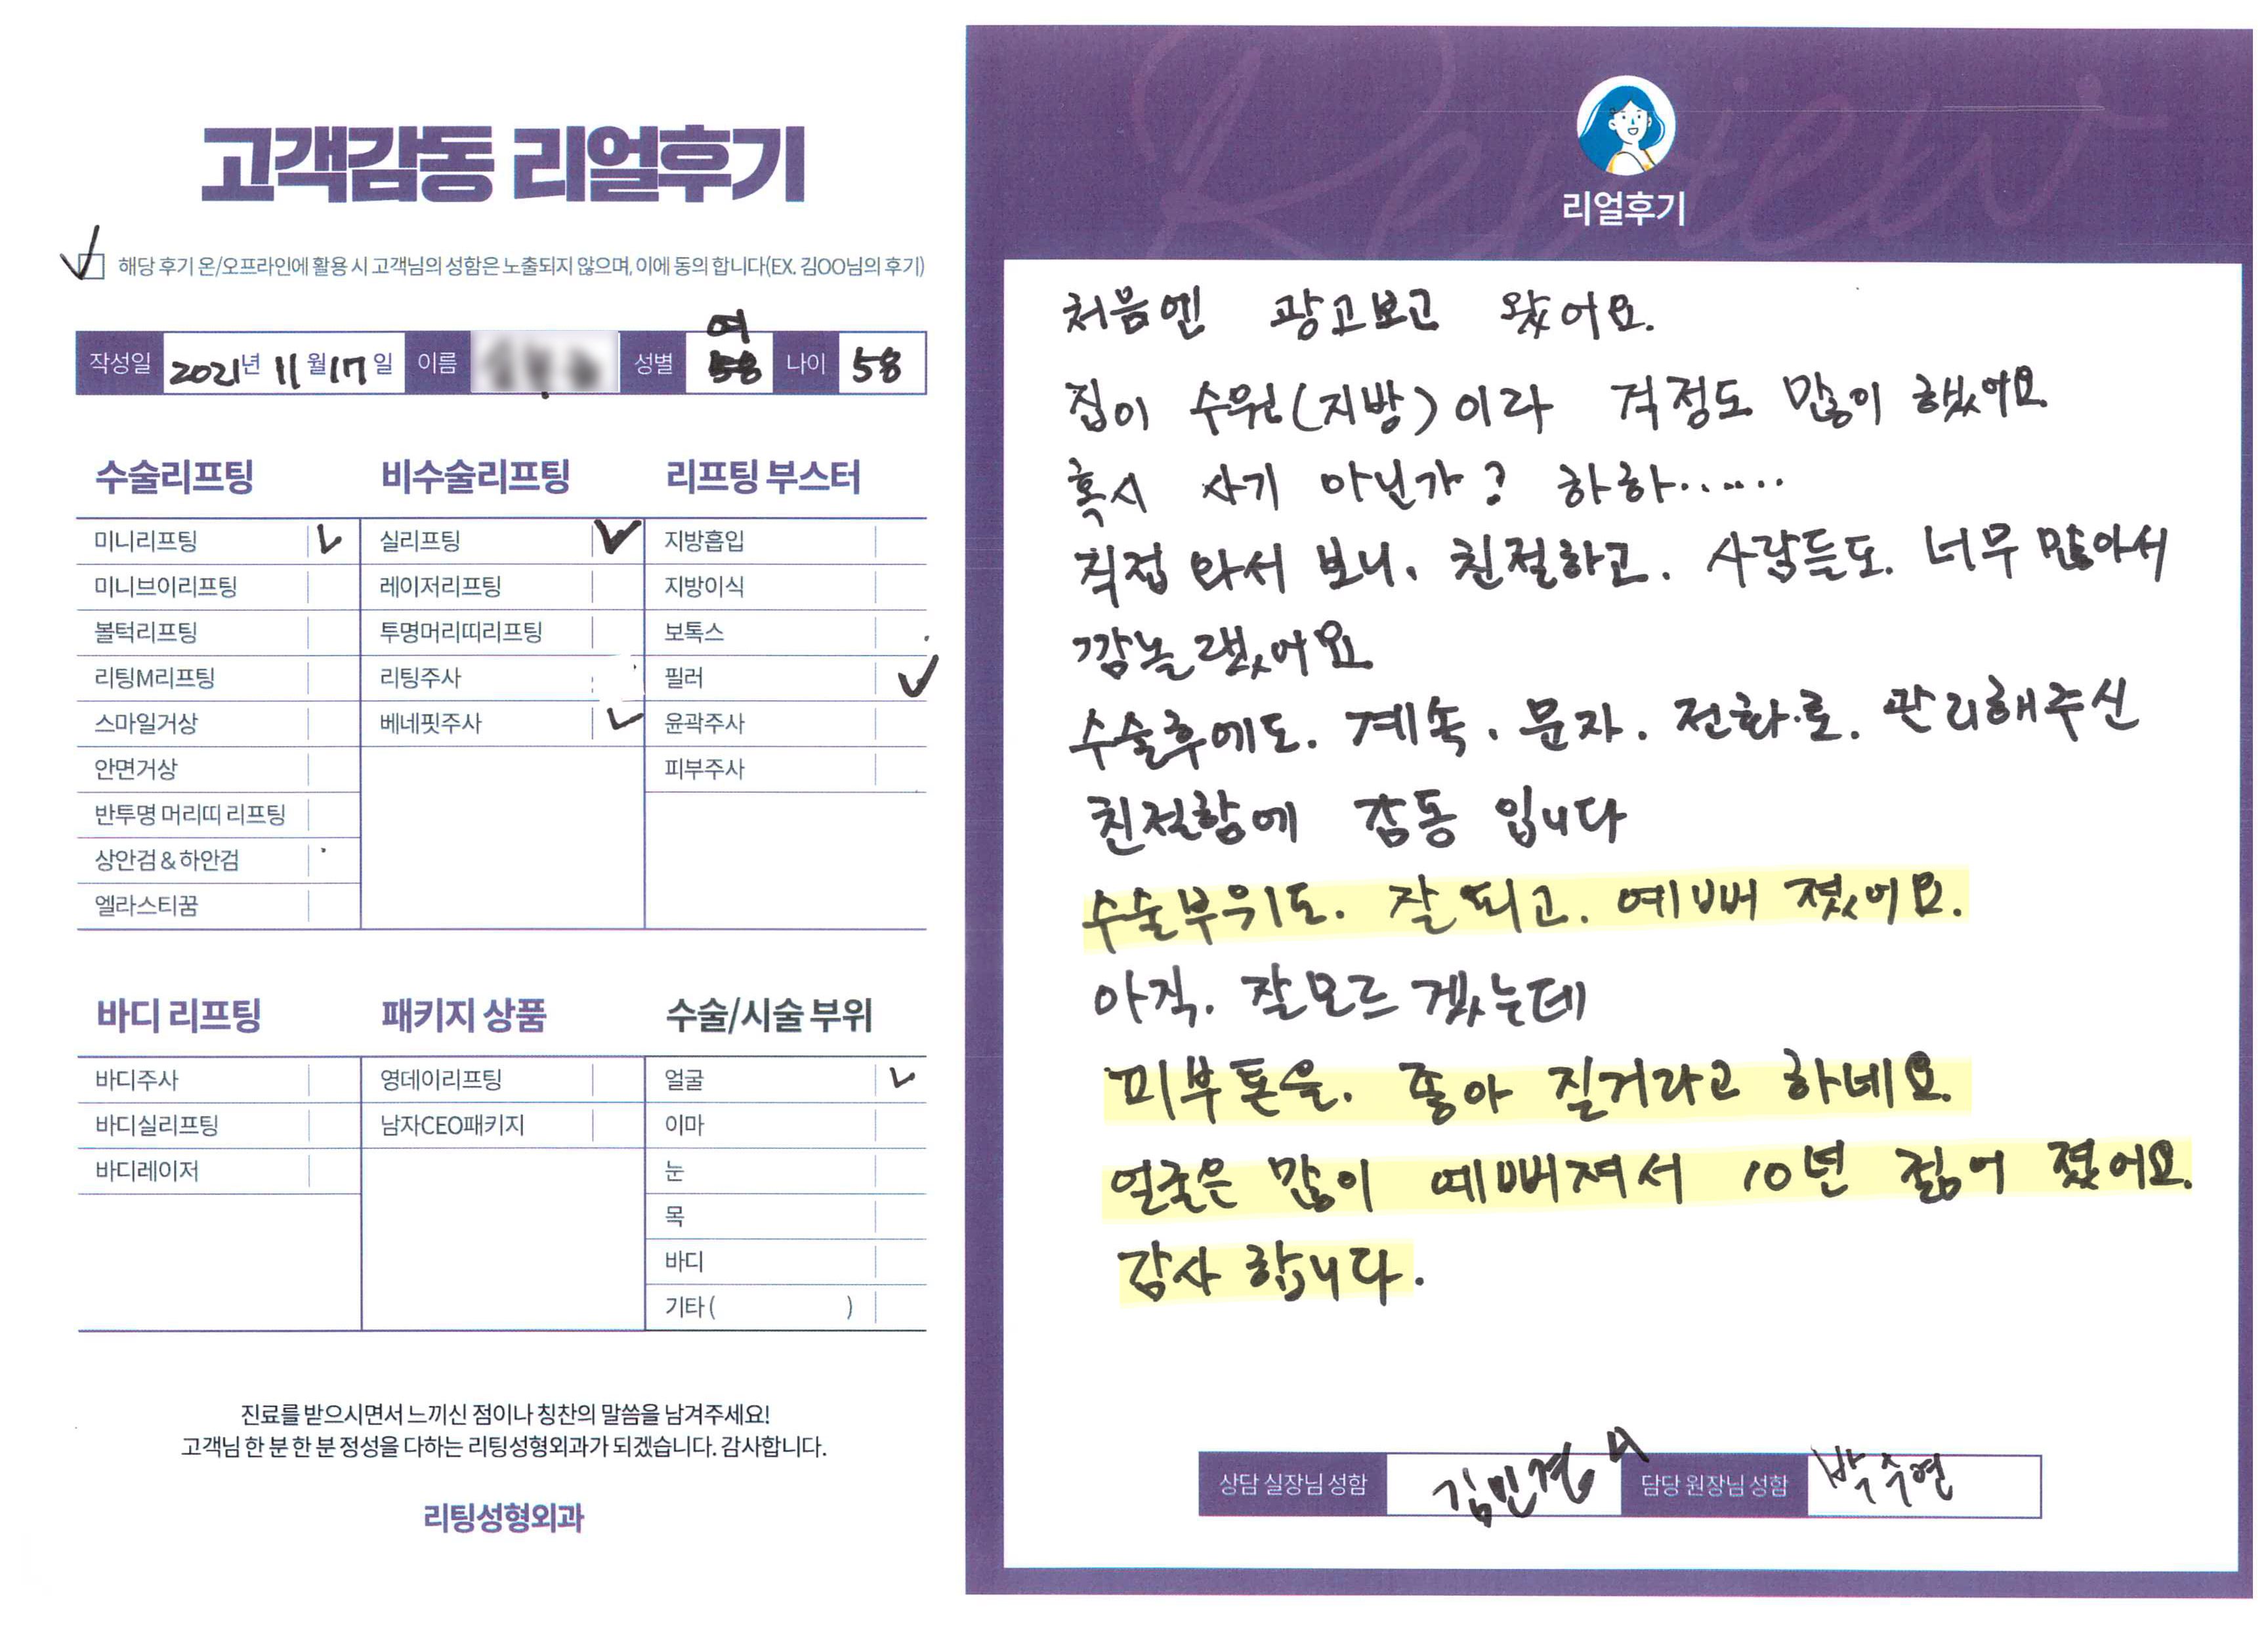 고객감동 리얼후기
해당 후기 온/오프라인에 활용 시 고객님의 성함은 노출되지 않으며, 이에 동의 합니다(EX. 김OO님의 후기)
작성일 2021년 11월 17일 이름 성별 여 나이 58
수술리프팅
미니리프팅
미니브이리프팅
볼턱리프팅
리팅M리프팅
스마일거상
안면거상
반투명 머리띠 리프팅
상안검 & 하안검
엘라스티꿈
비수술리프팅
실리프팅
레이저리프팅
투명머리띠리프팅
리팅주사
베네핏주사
리프팅 부스터
지방흡입
지방이식
보톡스
필러
윤곽주사
피부주사
바디 리프팅
바디주사
바디실리프팅
바디레이저
패키지 상품
영데이리프팅
남자CEO패키지
수술/시술 부위
얼굴
이마
눈
목
바디
기타 ( )
진료를 받으시면서 느끼신 점이나 칭찬의 말씀을 남겨주세요!
고객님 한 분 한 분 정성을 다하는 리팅성형외과가 되겠습니다. 감사합니다.
리팅성형외과
Review
리얼후기
처음엔 광고보고 왔어요.
집이 수원(지방)이라 걱정도 많이 했어요
혹시 사기 아닌가? 하하......
직접 와서 보니. 친절하고. 사람들도. 너무 많아서
깜놀랬어요
수술후에도. 계속. 문자. 전화.로. 관리해주신
친절함에 감동 입니다
수술부위도. 잘 되고. 예뻐 졌어요.
아직. 잘모르겠는데
피부톤은. 좋아 질거라고 하네요.
얼굴은 많이 예뻐져서 10년 젊어 졌어요.
감사 합니다.
상담 실장님 성함 김민경 담당 원장님 성함 박수연